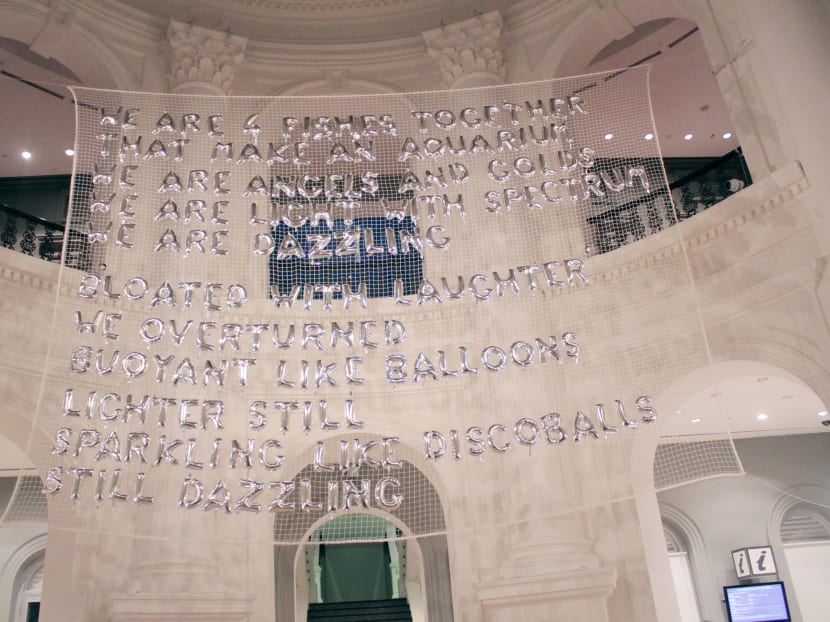 WE ARE 4 FISHES TOGETHER
THAT MAKE AN AQUARIUM
WE ARE ANGELS AND GOLDS
WE ARE LIGHT WITH SPECTRUM
WE ARE DAZZLING
BLOATED WITH LAUGHTER
WE OVERTURNED
BUOYANT LIKE BALLOONS
LIGHTER STILL
SPARKLING LIKE DISCOBALLS
STILL DAZZLING
i i